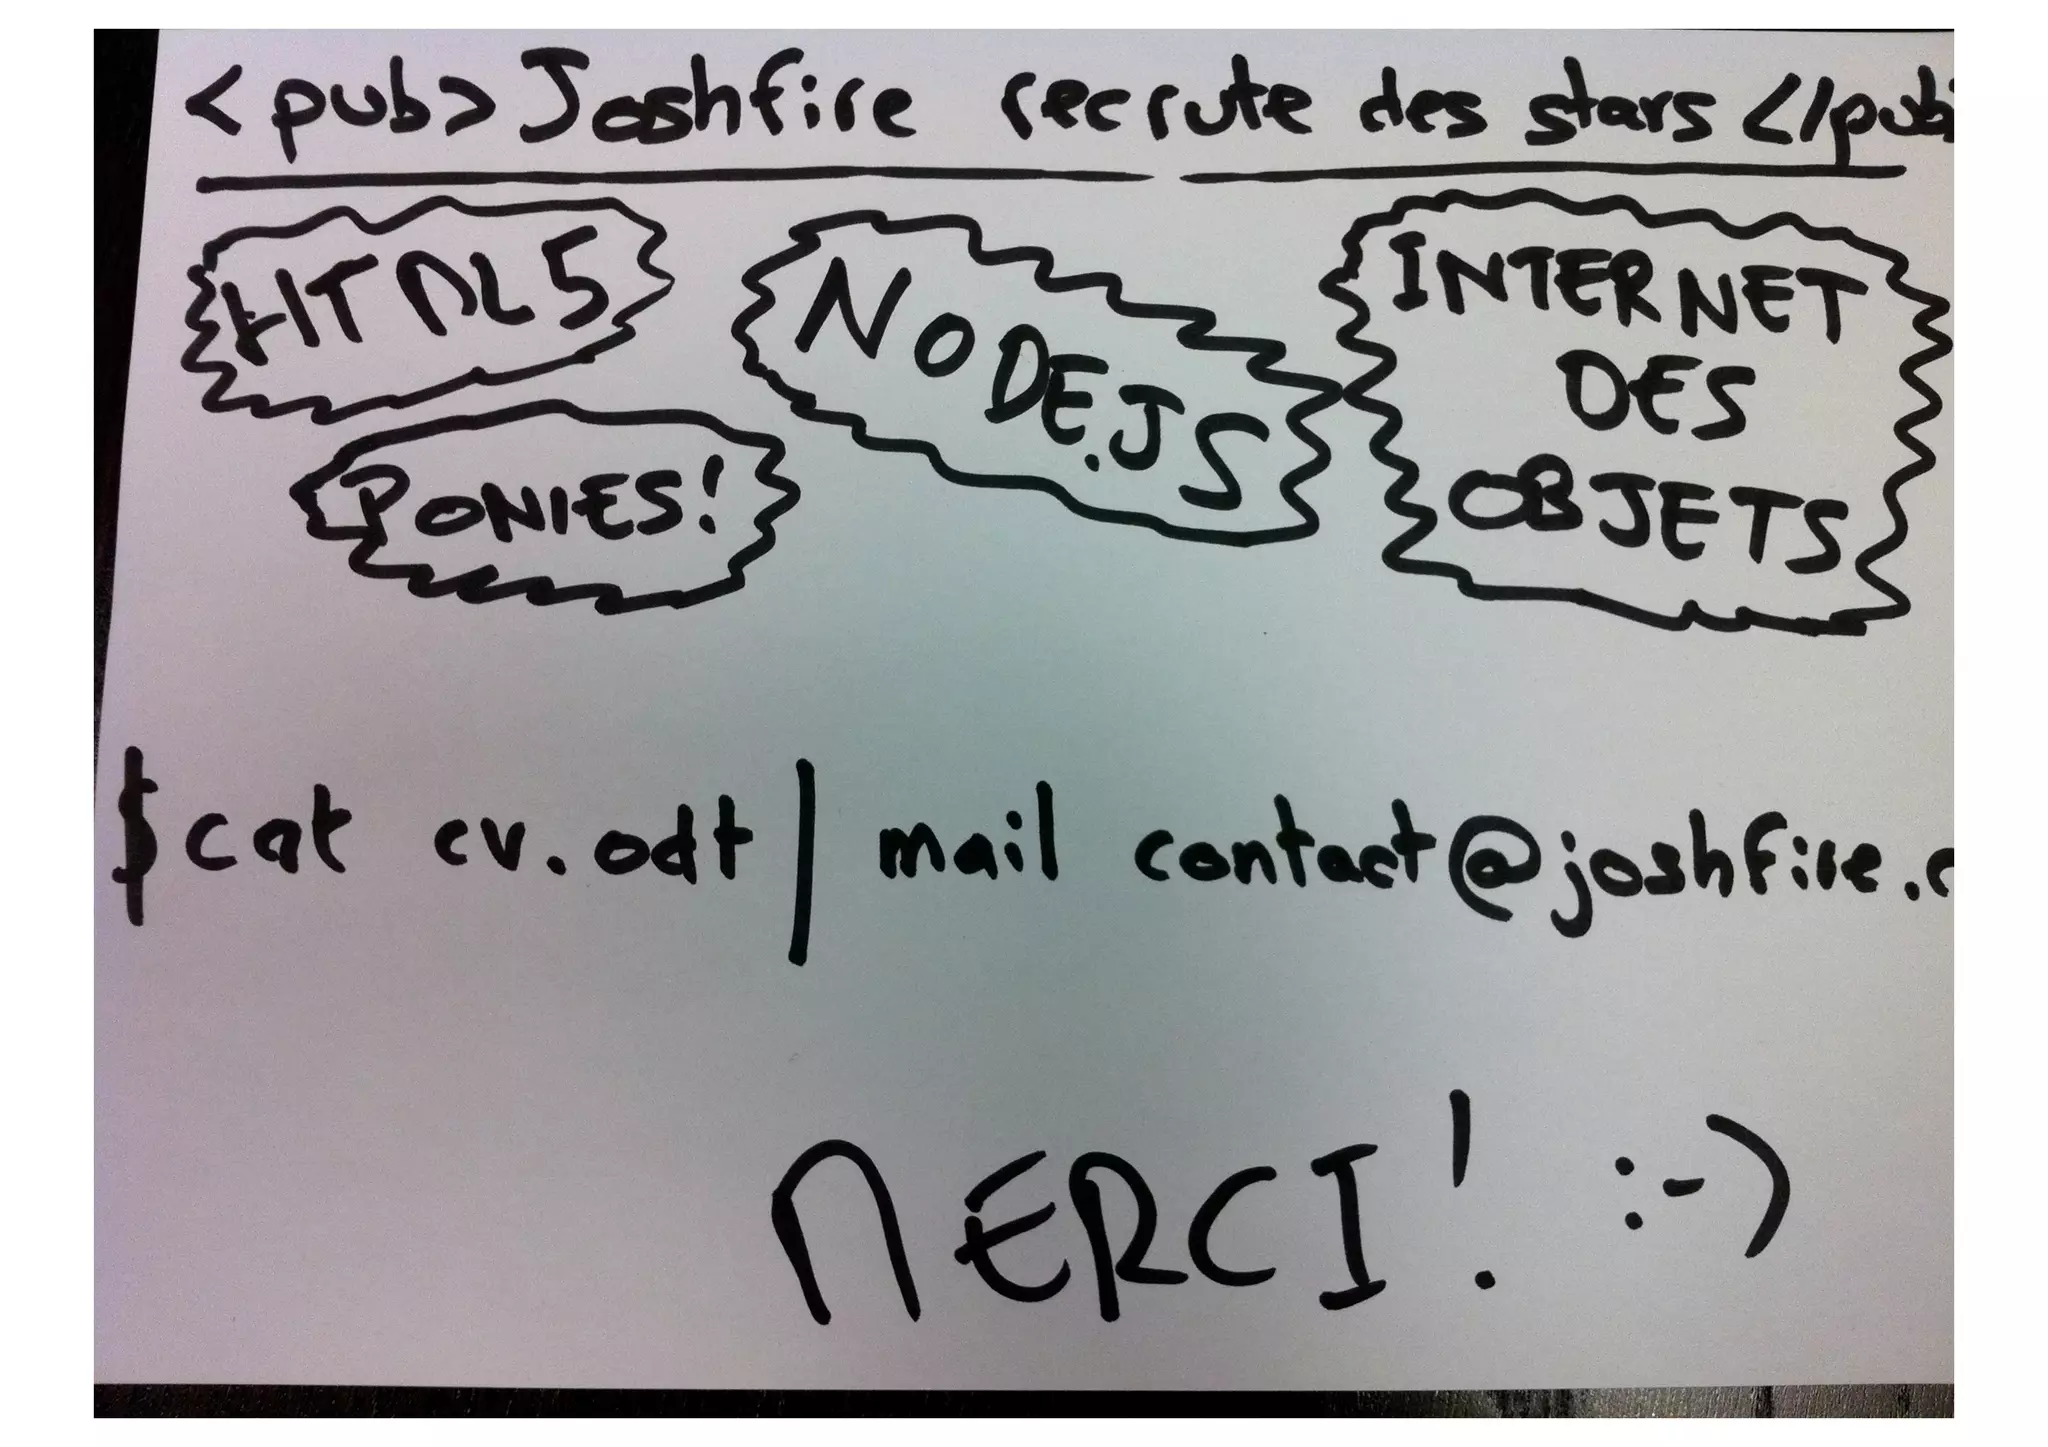 <pub> Joshfire recrute des stars </pub
HTML5
NODE.JS
INTERNET
DES
OBJETS
PONIES!
$cat cv.odt | mail contact@joshfire.c
MERCI! :-)